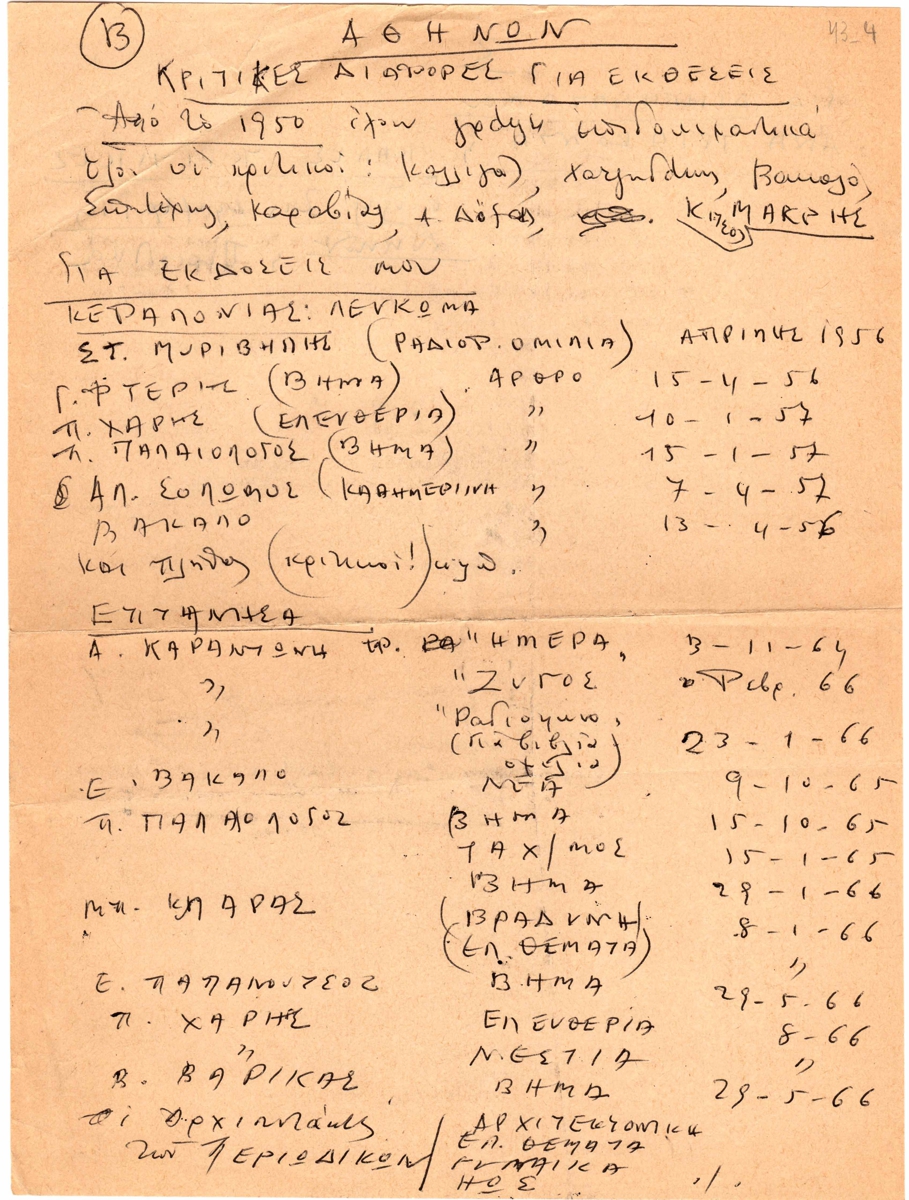 Β ΑΘΗΝΩΝ 43-4
ΚΡΙΤΙΚΕΣ ΔΙΑΦΟΡΕΣ ΓΙΑ ΕΚΘΕΣΕΙΣ
Από το 1950 έχουν γράψη επιδοκιμαστικά
όλοι οι κριτικοί: Καλλιγάς, Χατζηδάκης, Βακαλό,
Σπητέρης, Καραβίας, Α. Δόξας, Κίτσος ΜΑΚΡΗΣ
ΓΙΑ ΕΚΔΟΣΕΙΣ ΜΟΥ
ΚΕΦΑΛΟΝΙΑΣ: ΛΕΥΚΩΜΑ
ΣΤ. ΜΥΡΙΒΗΛΗΣ (ΡΑΔΙΟΦ. ΟΜΙΛΙΑ) ΑΠΡΙΛΗΣ 1956
Γ. ΦΤΕΡΗΣ (ΒΗΜΑ) ΑΡΘΡΟ 15-4-56
Π. ΧΑΡΗΣ (ΕΛΕΥΘΕΡΙΑ) " 10-1-57
Π. ΠΑΛΑΙΟΛΟΓΟΣ (ΒΗΜΑ) " 15-1-57
ΑΛ. ΣΟΛΩΜΟΣ (ΚΑΘΗΜΕΡΙΝΗ " 7-4-57
ΒΑΚΑΛΟ " 13-4-56
και πλήθος (κριτικοί!)
ΕΠΤΑΝΗΣΑ
Α. ΚΑΡΑΝΤΩΝΗ "ΗΜΕΡΑ, 3-11-64
" "ΖΥΓΟΣ Φεβρ. 66
" "Ραδιοφωνο,
(Για βιβλία 23-1-66
σχόλιο)
Ε. ΒΑΚΑΛΟ ΝΕΑ 9-10-65
Π. ΠΑΛΑΙΟΛΟΓΟΣ ΒΗΜΑ 15-10-65
ΤΑΧ/ΜΟΣ 15-1-65
ΒΗΜΑ 29-1-66
ΜΠ. ΚΛΑΡΑΣ (ΒΡΑΔΥΝΗ) 8-1-66
(ΕΛ. ΘΕΜΑΤΑ) "
Ε. ΠΑΠΑΝΟΥΤΣΟΣ ΒΗΜΑ 29-5-66
Π. ΧΑΡΗΣ ΕΛΕΥΘΕΡΙΑ 8-66
" Ν. ΕΣΤΙΑ "
Β. ΒΑΡΙΚΑΣ ΒΗΜΑ 29-5-66
οι Αρχισυντάκτες ΑΡΧΙΤΕΚΤΟΝΙΚΗ
των ΠΕΡΙΟΔΙΚΩΝ / ΕΛ. ΘΕΜΑΤΑ
ΓΥΝΑΙΚΑ
ΗΩΣ ./.